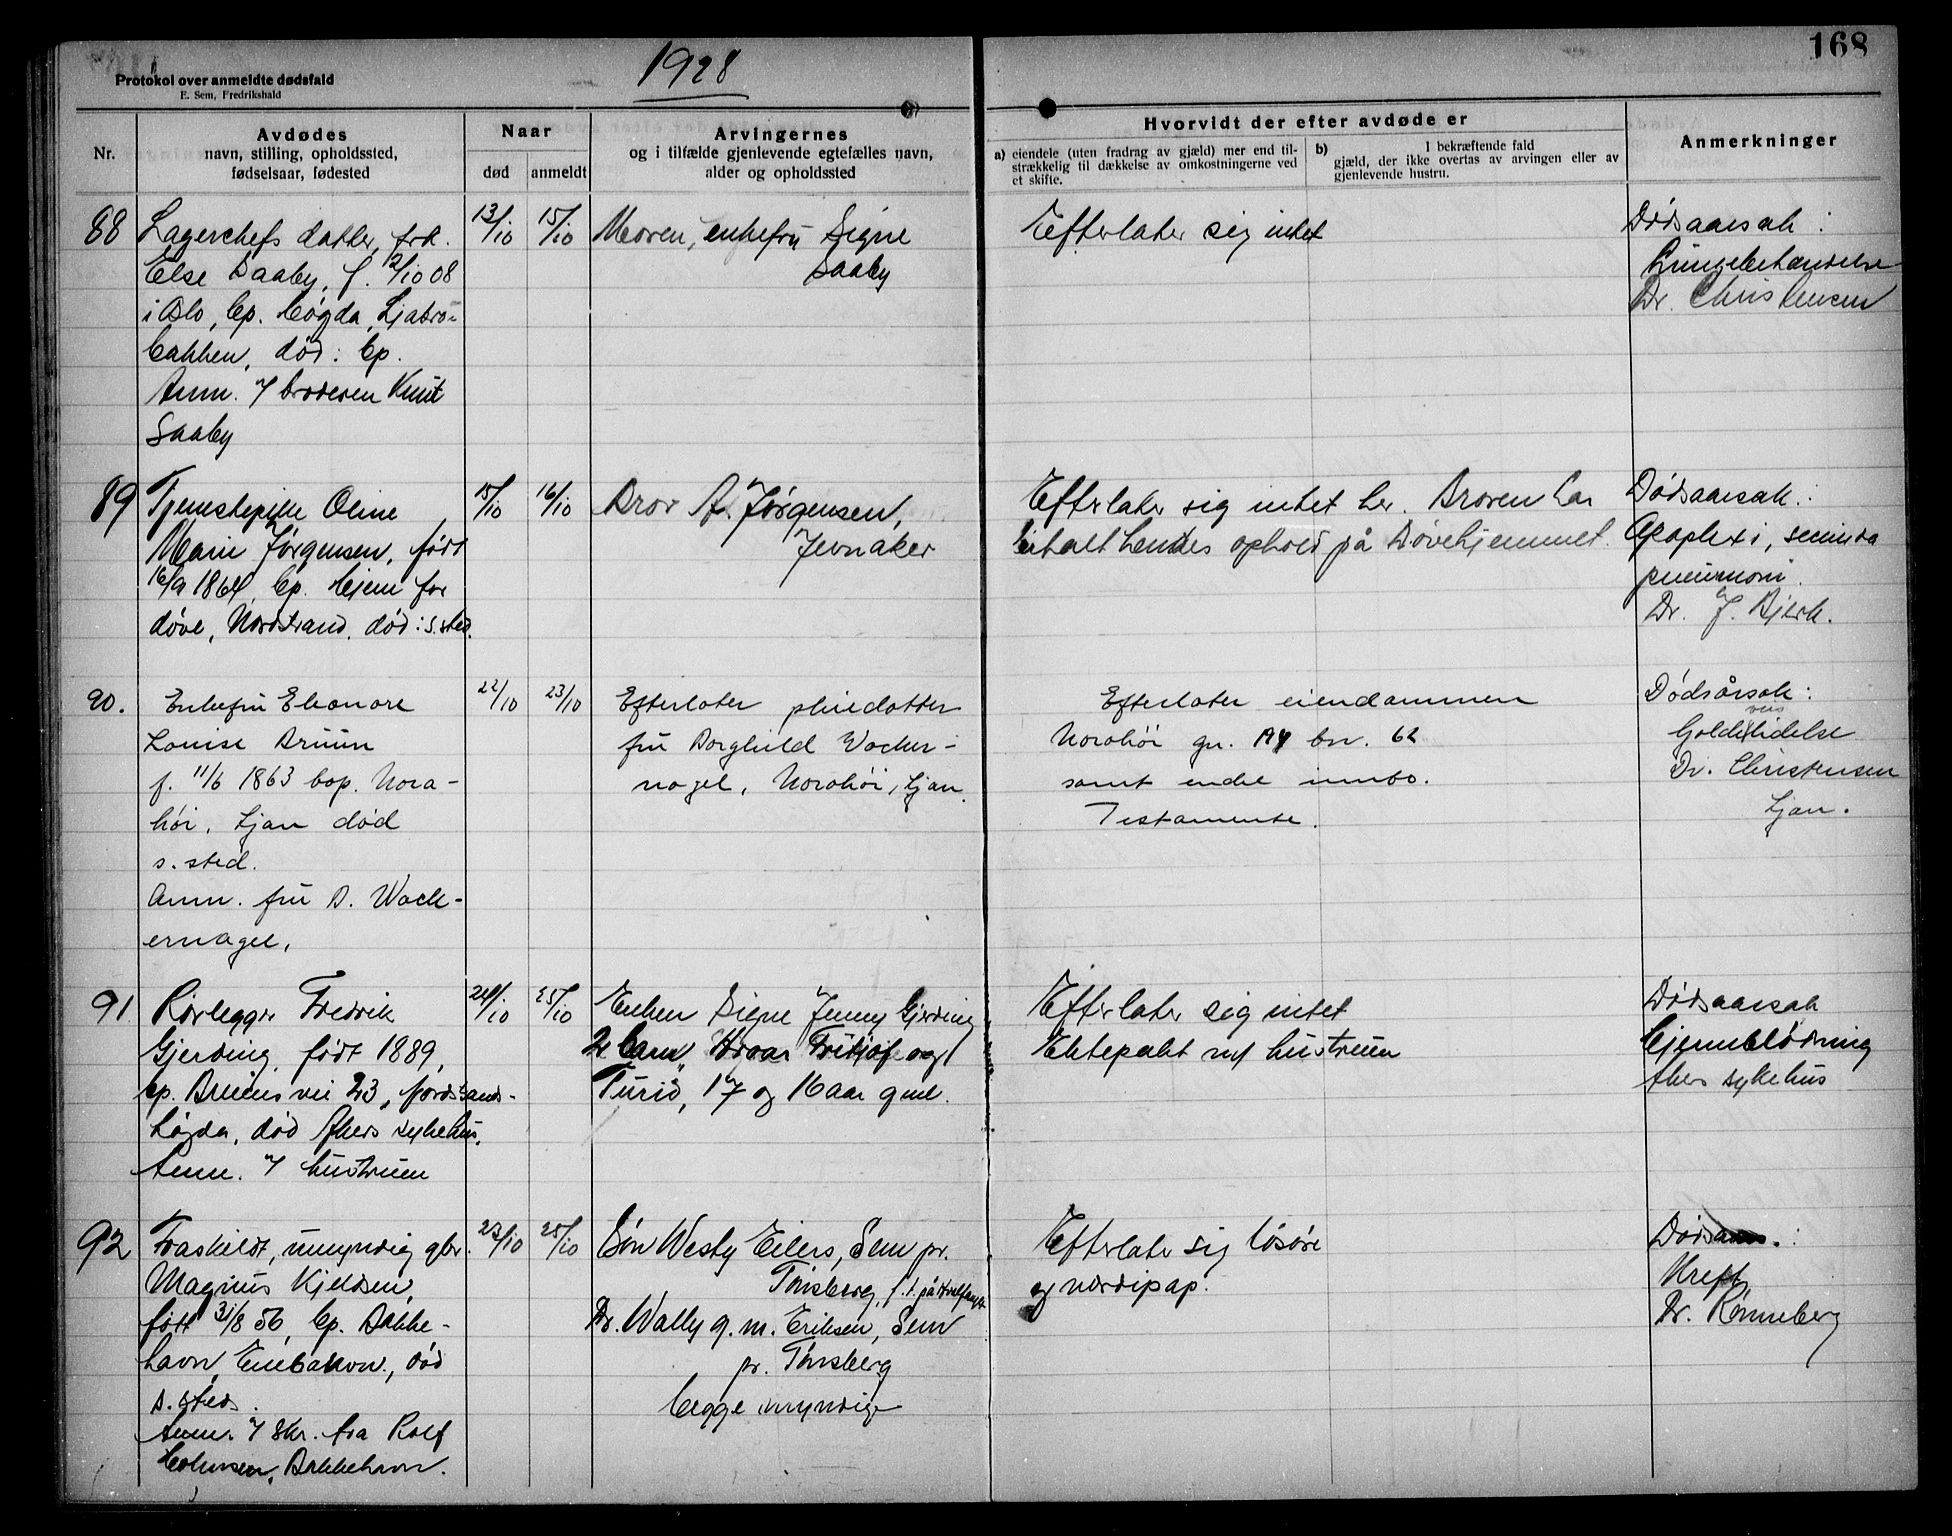 168
1928
Protokol over anmeldte dødsfald
E. Sem, Fredrikshald
Nr.
Avdødes
navn, stilling, opholdssted,
fødselsaar, fødested
Naar
død
anmeldt
Arvingernes
og i tilfælde gjenlevende egtefælles navn,
alder og opholdssted
Hvorvidt der efter avdøde er
a) eiendele (uten fradrag av gjæld) mer end til-
strækkelig til dækkelse av omkostningerne ved
et skifte.
b) I bekræftende fald
gjæld, der ikke overtas av arvingen eller av
gjenlevende hustru.
Anmerkninger
88
Lagerchefs datter, frk.
Else Saaby, f. 12/10 08
i Oslo, bp. Høgda, Ljabro-
bakken, død: bp.
Anm. v/ broderen Knut
Saaby
13/10
15/10
Moren, enkefru Signe
Saaby
Efterlater sig intet
Dødsaarsak:
Lungebetændelse
Dr. Christensen
89
Tjenestepike Oline
Marie Jørgensen, født
16/9 1864, bp. Hjem for
døve, Nordstrand, død: s. sted.
15/10
16/10
Bror A. Jørgensen,
Jevnaker
Efterlater sig intet her. Broren har
betalt hendes ophold på Døvehjemmet.
Dødsaarsak:
Apoplexi, secunda
pneumoni.
Dr. J. Bjerk.
90.
Enkefru Eleonore
Louise Bruun
f. 11/6 1863 bop. Nora-
høi, Ljan død
s. sted.
Anm. fru B. Wack-
ernagel.
22/10
23/10
Efterlater pleiedatter
fru Borghild Wacker-
nagel, Norahøi, Ljan.
Efterlater eiendommen
Norahøi gn. bn. 62
samt endel innbo.
Testamente.
Dødsårsak:
veis
Galdelidelse
Dr. Christensen
Ljan.
91
Rørlegger Fredrik
Gjerding, født 1889,
bp. Bruens vei 23, Nordstrands-
høgda, død Akers sykehus.
Anm. v/ hustruen
24/10
25/10
Enken Signe Jenny Gjerding
2 barn, Fritjof og
Turid, 17 og 16 aar gml.
Efterlater sig intet
Ektepakt m/ hustruen
Dødsaarsak
Hjerneblødning
Akers sykehus
92
Fraskildt, umyndig gbr.
Magnus Kjeldsen,
født 31/8 56, bp. Bakke-
havn, Enebakvn., død
s. sted.
Anm. v/ skr. fra Rolf
Bakkehavn.
23/10
25/10
Søn Westy Eilers, Sem pr.
Tønsberg, f. t. på Hvalfangst
Dr. Wally g. m. Eriksen, Sem
pr. Tønsberg
begge myndige
Efterlater sig løsøre
og verdipap.
Kreft
Dr. Rønneberg